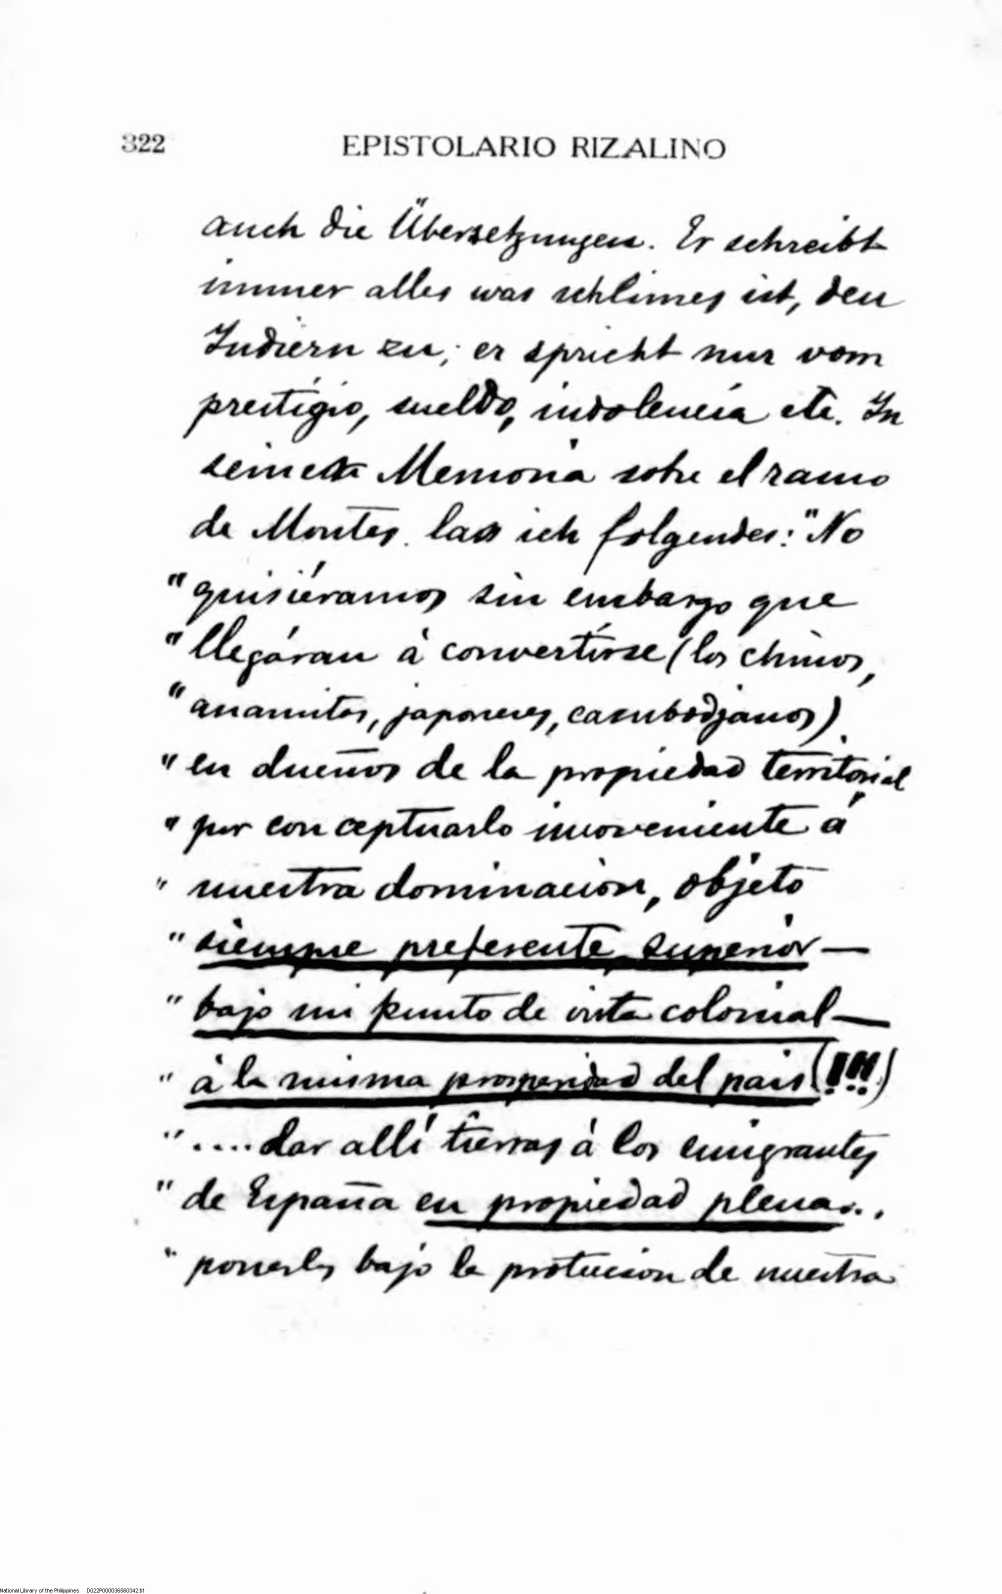 322 EPISTOLARIO RIZALINO
auch die Übersetzungen. Er schreibt
immer alles was schlimes ist, den
Indiern zu; er spricht nur vom
prestigio, sueldo, indolencia etc. In
seine Memoria sobre el ramo
de Montes. las ich folgendes: "No
" quisiéramos sin embargo que
" llegáran á convertirse (los chinos,
" anamitas, japoneses, cambodjanos)
" en dueños de la propiedad territorial
" por conceptuarlo inconveniente á
" nuestra dominacion, objeto
" siempre preferente, superior —
" bajo mi punto de vista colonial —
" á la misma prosperidad del pais (!!!)
" .... dar allí tierras á los emigrantes
" de España en propiedad plena...
" ponerles bajo la proteccion de nuestra
National Library of the Philippines